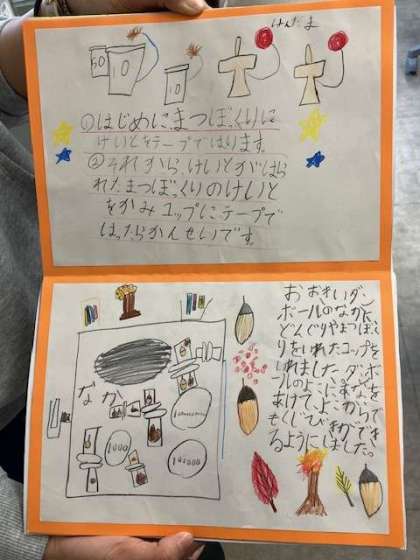 けんだま
50
10
10
①はじめにまつぼっくりに
けいとをテープではります。
②それから、けいとがはら
れたまつぼっくりのけいと
をかみコップにテープで
はったらかんせいです。
おおきいダン
ボールのなかに
どんぐりやまつぼっく
りをいれたコップを
いれました。ダンボ
ールのよこにあなを
あけて、よこからで
もくじびきができ
るようにしました。
なか
1000